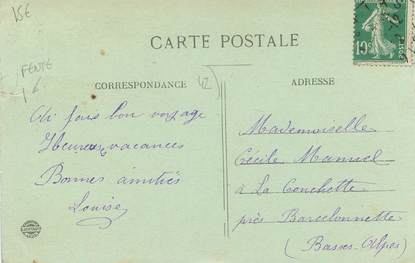 15€
FENTE
CARTE POSTALE
CORRESPONDANCE
42
ADRESSE
10c
Ai fais bon voyage
Heureuses vacances
Bonnes amitiés
Louise
Mademoiselle
Cécile Manuel
à La Conchette
près Barcelonnette
(Basses-Alpes)